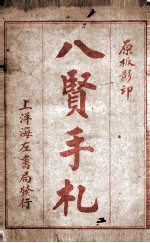 原板影印
八賢手札
上洋海左書局發行